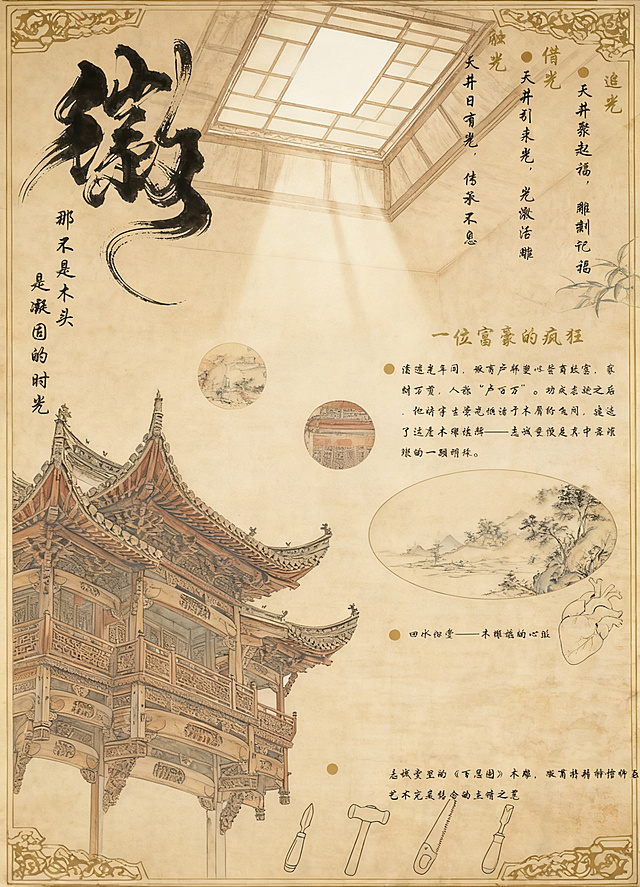 徽
那不是木头
是凝固的时光
追光
天井聚起福，雕刻记福
借光
天井引来光，光激活雕
融光
天井日有光，传承不息
一位富豪的疯狂
清道光年间，歙有卢邦燮以营商致富，家
财万贯，人称“卢百万”。功成名退之后
，他将半生荣光倾注于木屑纷飞间，建造
了这座木雕楼群——志诚堂便是其中最璀
璨的一颗明珠。
四水归堂——木雕楼的心脏
志诚堂里的《百忍图》木雕，
艺术完美结合的点睛之笔